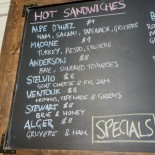 HOT SANDWICHES
ALPE D'HUEZ $9
HAM, SALAMI, TAPENADE, GRUYERE
MADONE $9
TURKEY, PESTO, GRUYERE
ANDERSON $8
BRIE, SUNDRIED TOMATOES
STELVIO $8
GOAT CHEESE & FIG JAM
VENTOUX $8
TAPENADE & GREENS
STEWART $8
BRIE & HONEY
ALGER $8
GRUYERE & HAM
SPECIALS